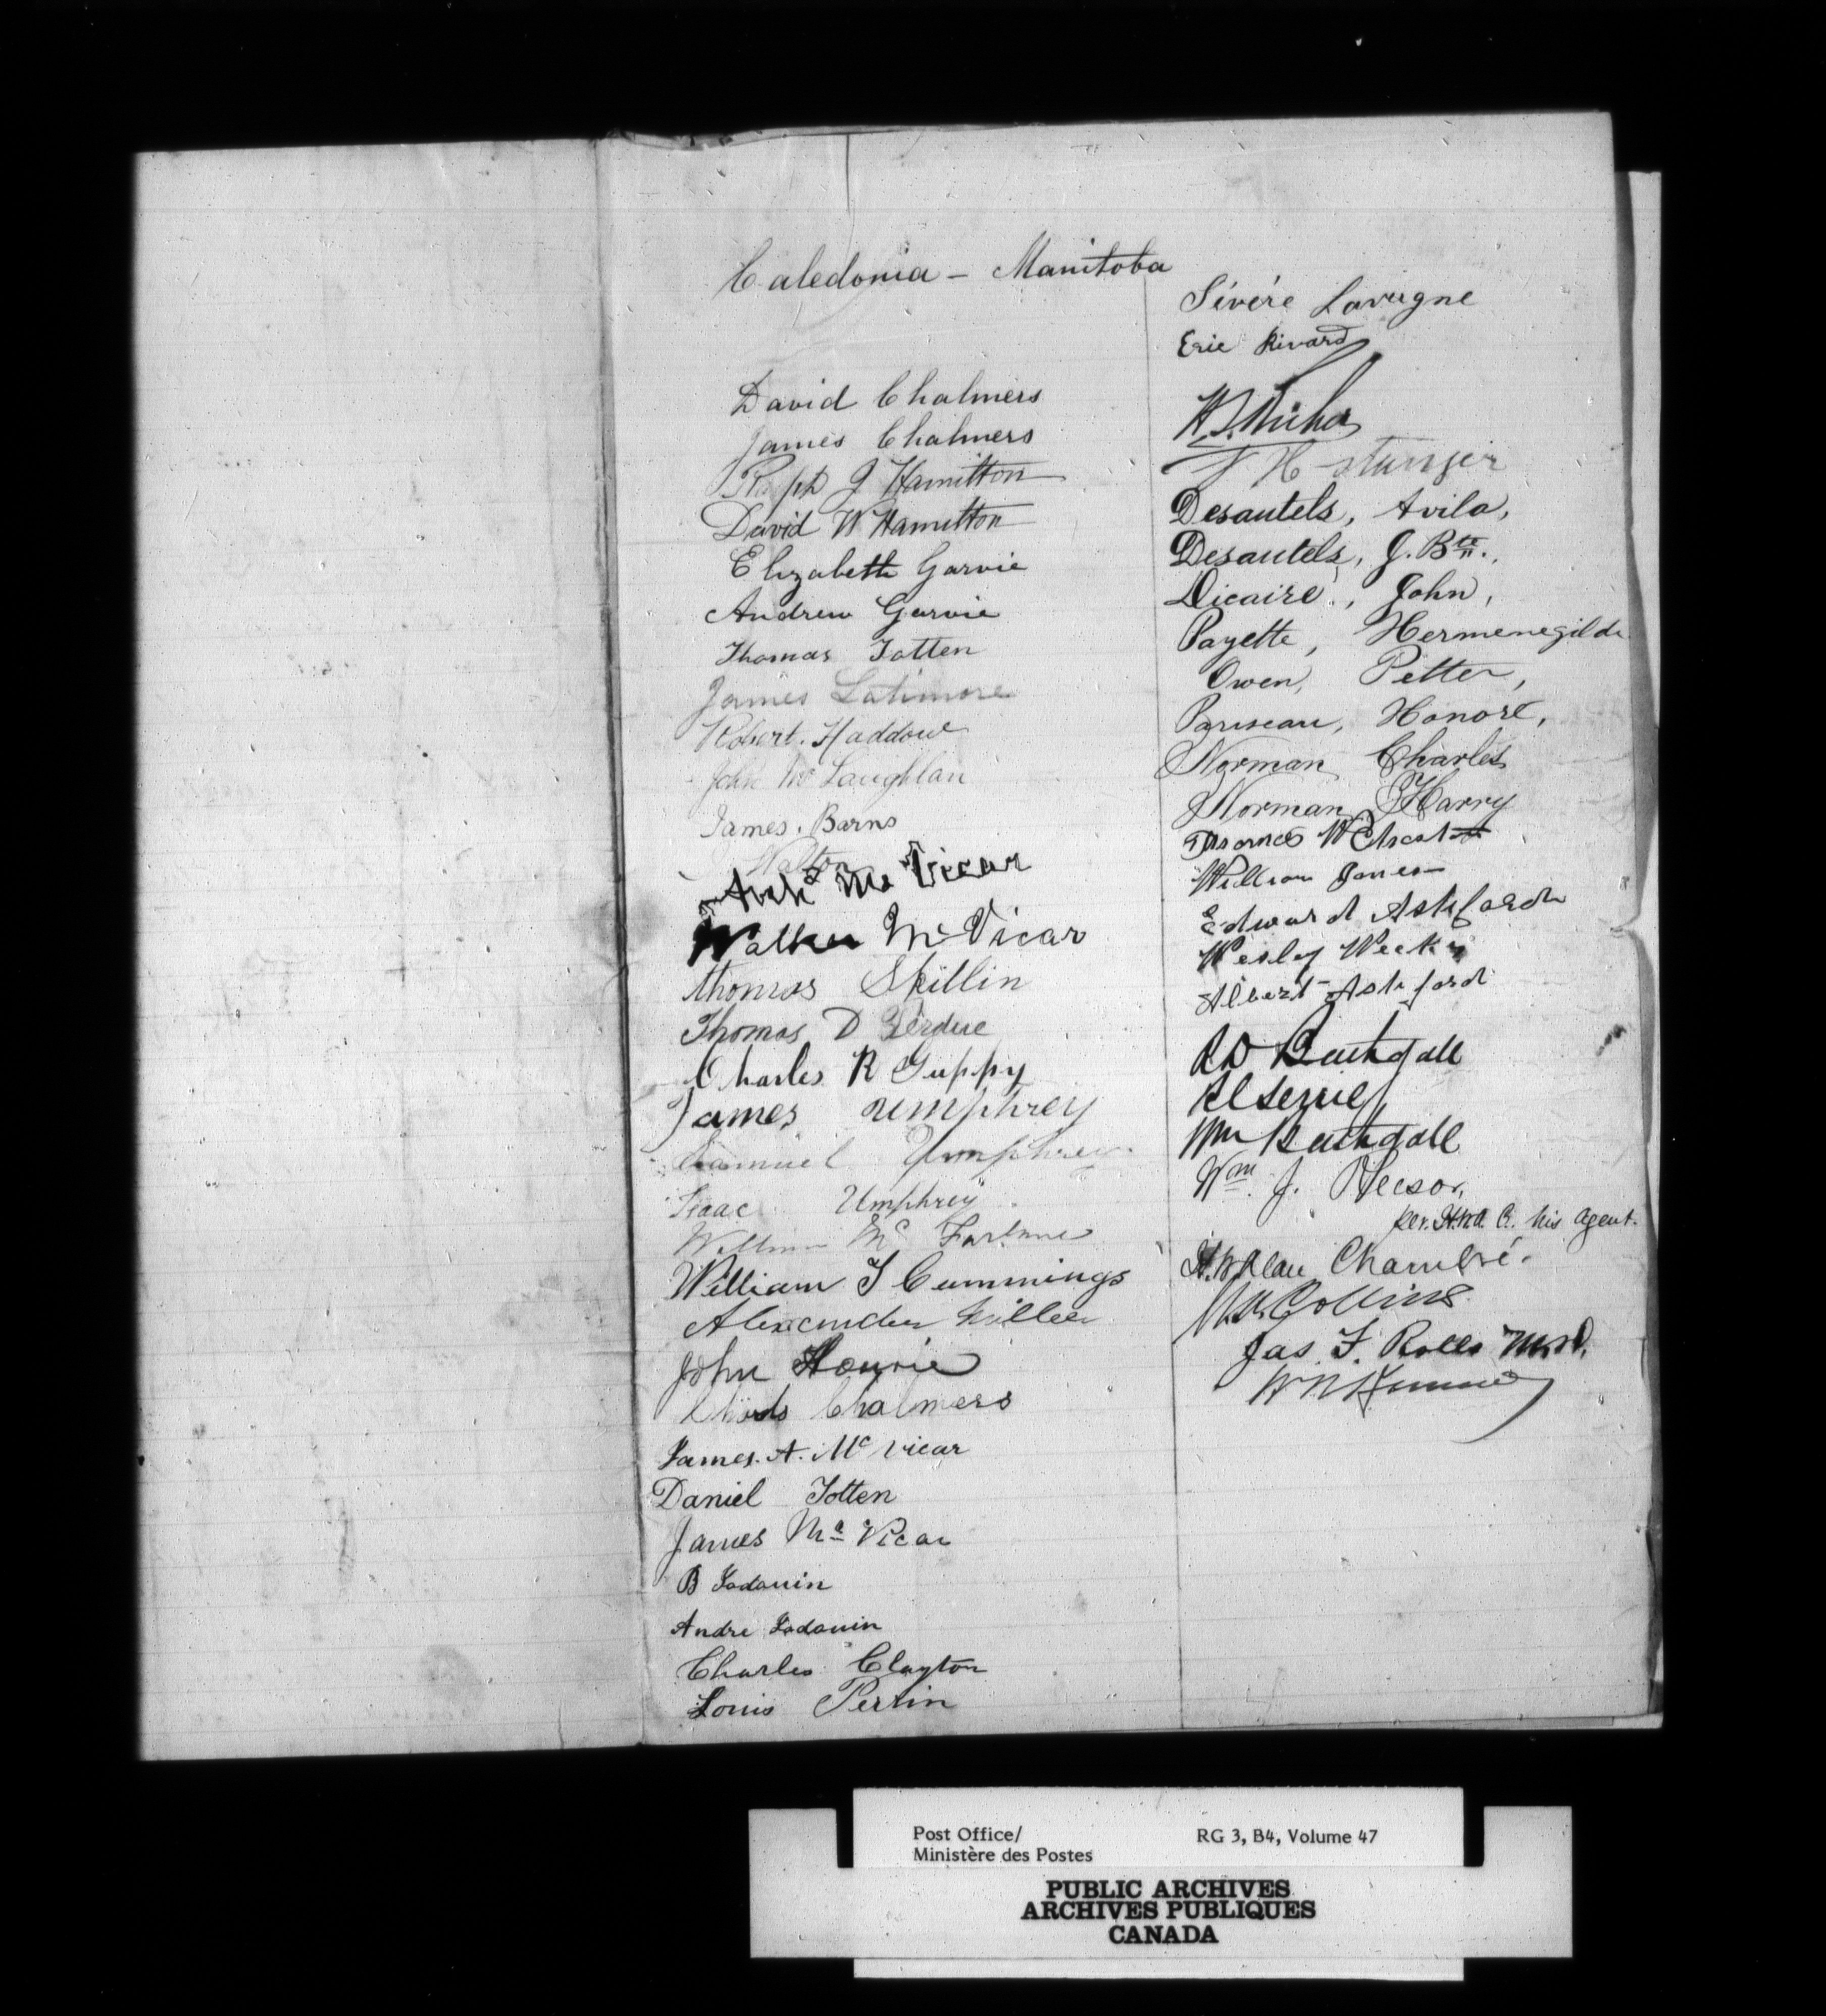 Caledonia - Manitoba
David Chalmers
James Chalmers
Ralph J Hamilton
David W Hamilton
Elizabeth Garvie
Andrew Garvie
Thomas Totten
James Latimore
Robert. Haddow
John McLaughlan
James. Barns
Walton
Archd Mc Vicar
Walker Mc Vicar
Thomas Skillin
Thomas D Perdue
Charles R Guppy
James Umphrey
Samuel Umphrey
Isaac Umphrey
William Mc Farlane
William J Cummings
Alexander Miller
John Hourie
Chalmers
James. A. Mc Vicar
Daniel Totten
James Mc Vicar
B Jadouin
Andre Jadouin
Charles Clayton
Louis Perrin
Sévére Lavergne
Eric Rivard
Desautels, Avila,
Desautels, J. Bte.,
Dicaire, John,
Payette, Hermenegilde
Owen, Petter,
Pariseau, Honoré,
Norman Charles
Norman Harry
Thomas
William Jones
Edward Ashford
Wesley Weeks
Albert Ashford
R D Bathgate
Wm Bathgate
Wm. J.
per. his agent.
Chambré.
Collins
Jas. F. Rolls M.D.
Post Office/
Ministère des Postes
RG 3, B4, Volume 47
PUBLIC ARCHIVES
ARCHIVES PUBLIQUES
CANADA